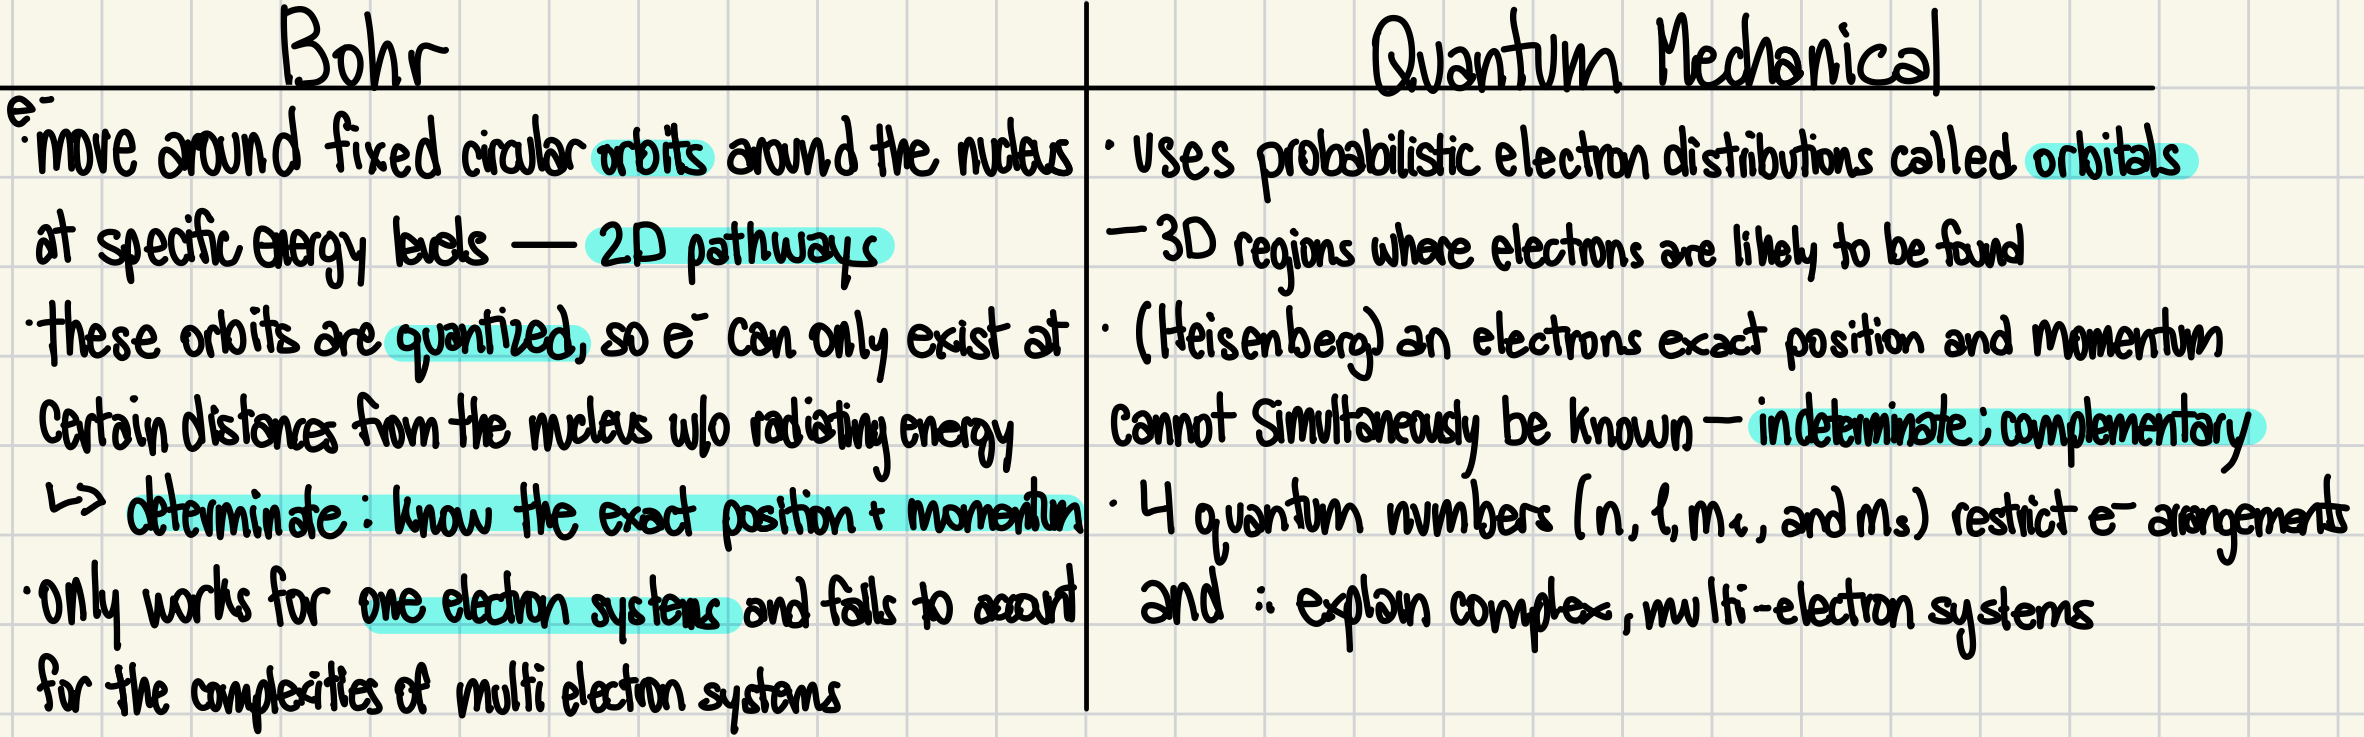 Bohr
e⁻
· move around fixed circular orbits around the nucleus
at specific energy levels — 2D pathways
· these orbits are quantized, so e⁻ can only exist at
certain distances from the nucleus w/o radiating energy
↳ determinate : know the exact position + momentum
· only works for one electron systems and fails to account
for the complexities of multi electron systems
Quantum Mechanical
· uses probabilistic electron distributions called orbitals
— 3D regions where electrons are likely to be found
· (Heisenberg) an electrons exact position and momentum
cannot simultaneously be known — indeterminate ; complementary
· 4 quantum numbers (n, l, mₗ, and mₛ) restrict e⁻ arrangements
and ∴ explain complex, multi-electron systems